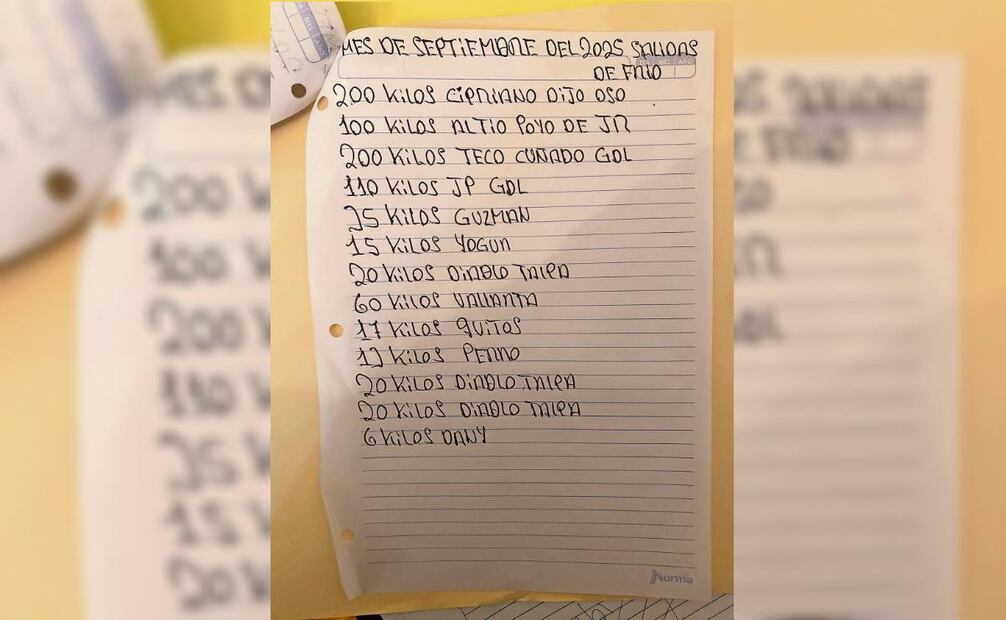 MES DE SEPTIEMBRE DEL 2025 SALIDAS
MES AÑO
DE FRIO
200 KILOS CIPRIANO DIJO OSO
100 KILOS ALTIO POYO DE JR
200 KILOS TECO CUÑADO GDL
110 KILOS JP GDL
35 KILOS GUZMAN
15 KILOS YOGUR
20 KILOS DIABLO TALPA
60 KILOS VALLARTA
17 KILOS QUITOS
13 KILOS PERRO
20 KILOS DIABLO TALPA
20 KILOS DIABLO TALPA
6 KILOS DANY
Norma